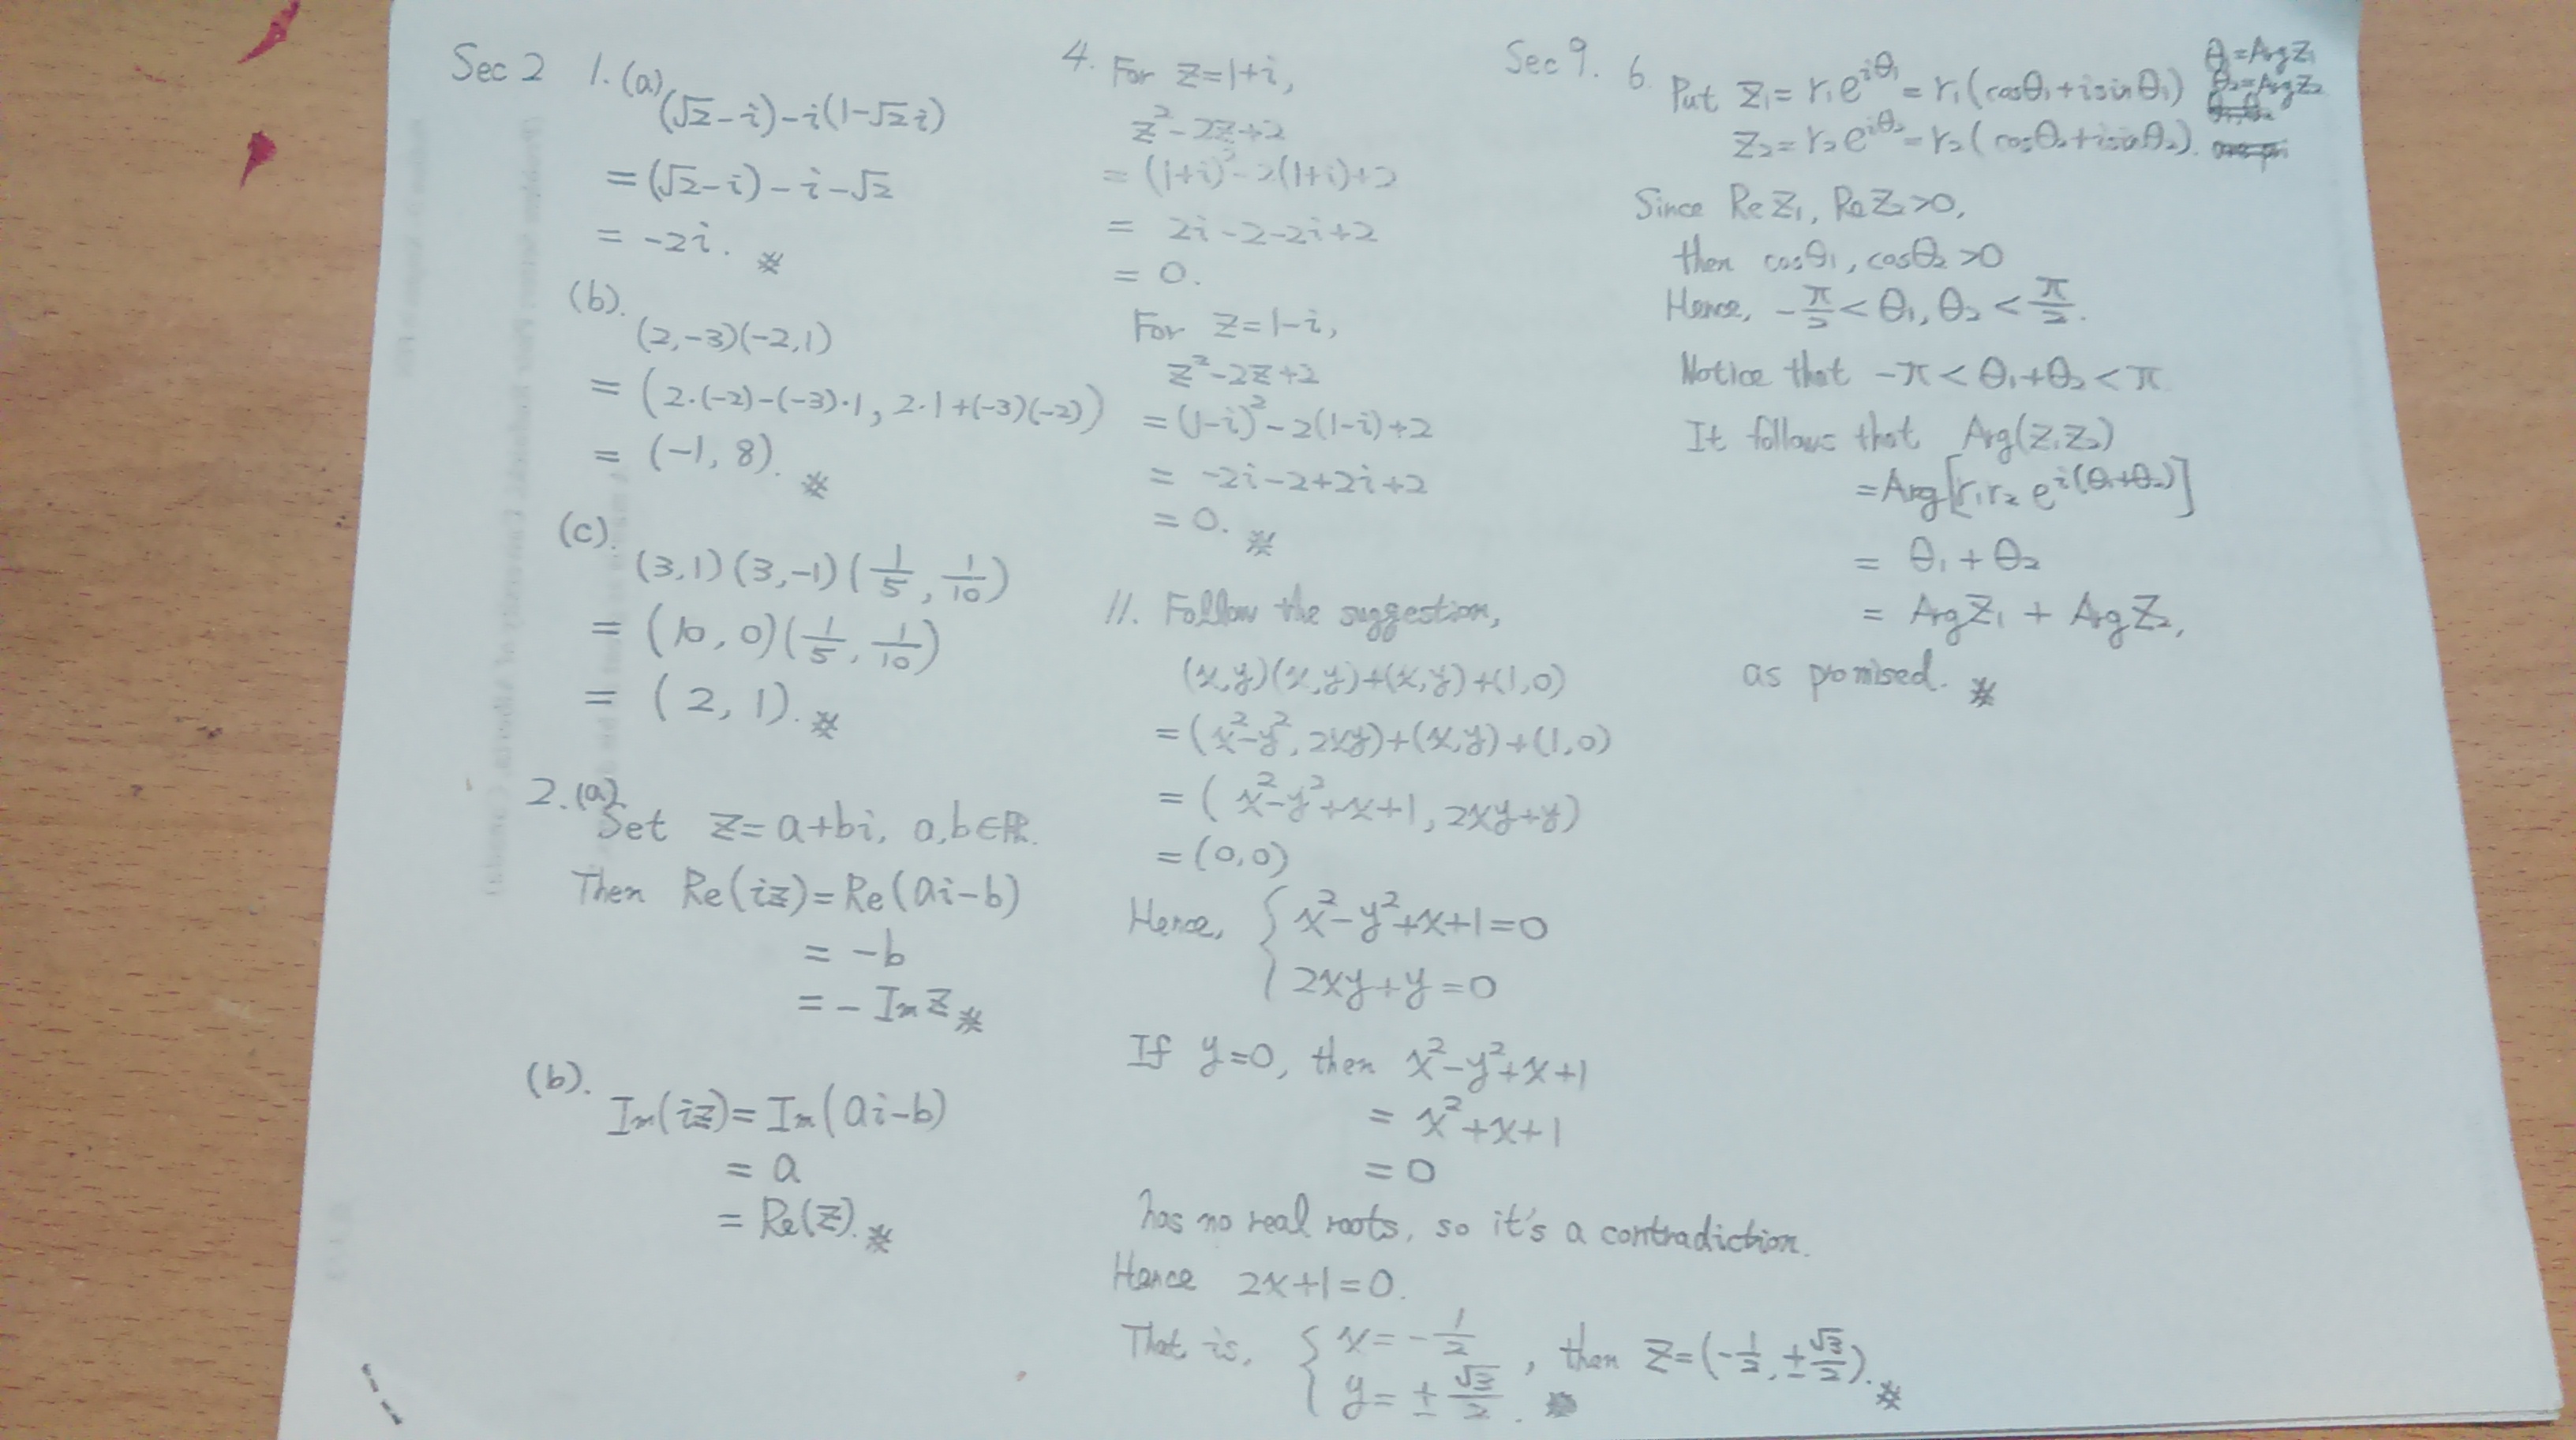 Sec 2 1. (a) (√2-i)-i(1-√2i)
=(√2-i)-i-√2
= -2i. ※
(b).
(2,-3)(-2,1)
= (2·(-2)-(-3)·1, 2·1+(-3)(-2))
= (-1, 8). ※
(c).
(3,1)(3,-1)(1/5, 1/10)
= (10, 0)(1/5, 1/10)
= (2, 1). ※
2. (a)
Set z=a+bi, a,b∈ℝ.
Then Re(iz)=Re(ai-b)
= -b
= - Im z ※
(b).
Im(iz)=Im(ai-b)
= a
= Re(z). ※
4. For z=1+i,
z²-2z+2
= (1+i)²-2(1+i)+2
= 2i-2-2i+2
= 0.
For z=1-i,
z²-2z+2
=(1-i)²-2(1-i)+2
= -2i-2+2i+2
= 0. ※
11. Follow the suggestion,
(x,y)(x,y)+(x,y)+(1,0)
=(x²-y², 2xy)+(x,y)+(1,0)
= (x²-y²+x+1, 2xy+y)
=(0,0)
Hence, { x²-y²+x+1=0
2xy+y=0
If y=0, then x²-y²+x+1
= x²+x+1
= 0
has no real roots, so it's a contradiction.
Hence 2x+1=0.
That is, { x=-1/2
y=±√3/2 , then z=(-1/2, ±√3/2). ※
Sec 9. 6. Put z₁=r₁e^{iθ₁}=r₁(cosθ₁+isinθ₁) θ₁=Arg z₁
z₂=r₂e^{iθ₂}=r₂(cosθ₂+isinθ₂). θ₂=Arg z₂
Since Re z₁, Re z₂>0,
then cosθ₁, cosθ₂>0
Hence, -π/2<θ₁, θ₂<π/2.
Notice that -π<θ₁+θ₂<π
It follows that Arg(z₁z₂)
=Arg[r₁r₂ e^{i(θ₁+θ₂)}]
= θ₁+θ₂
= Arg z₁ + Arg z₂,
as promised. ※